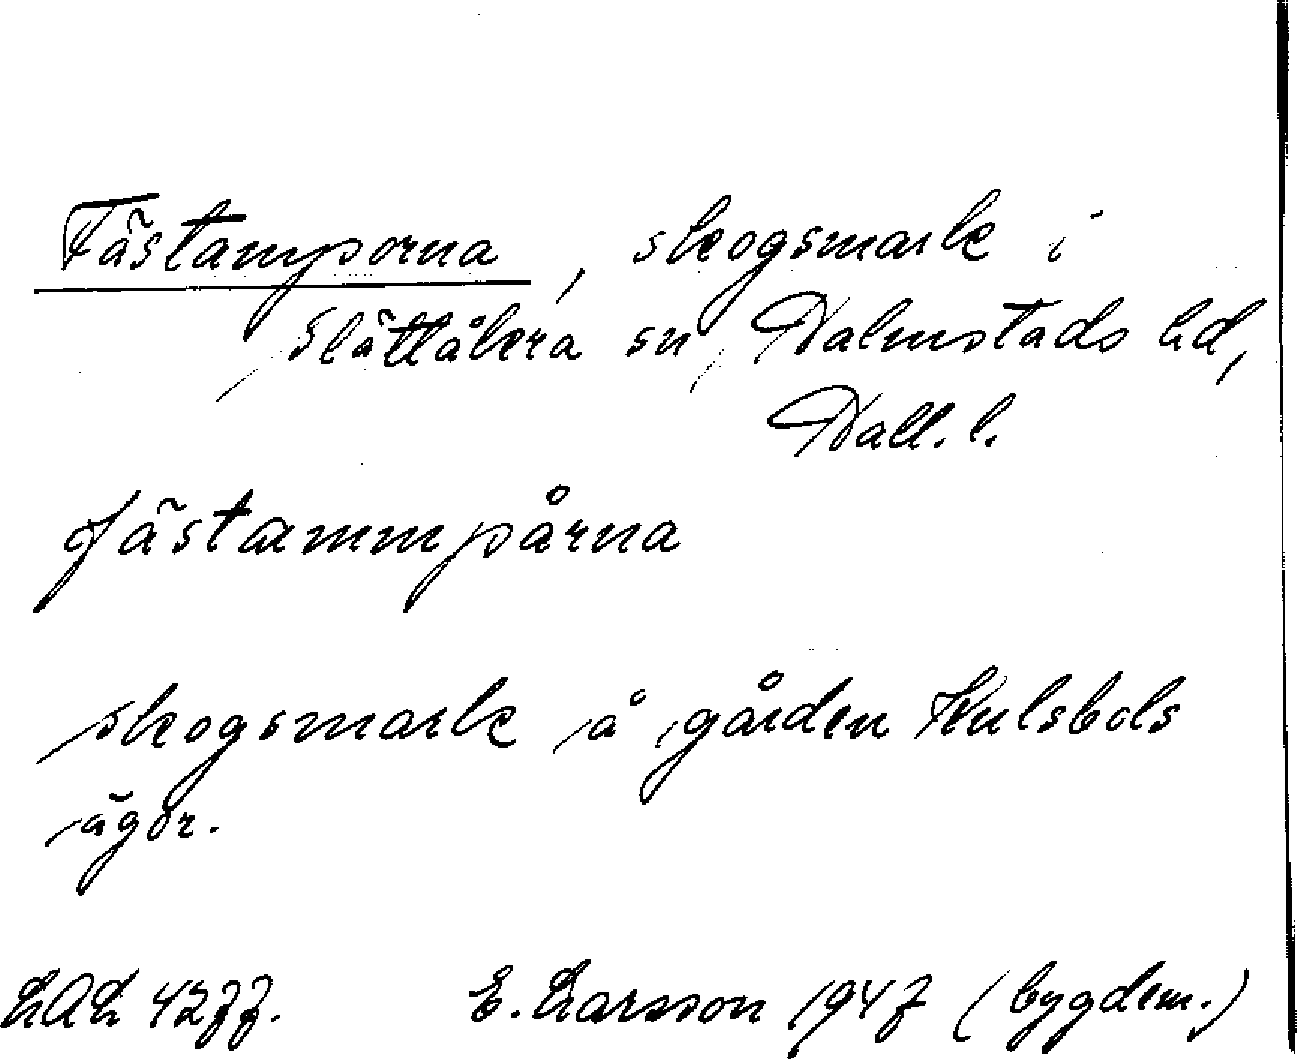 Fästamporna, skogsmark i
Slättåkra sn, Halmstads hd,
Hall. l.
fästammpårna
skogsmark å gården Kulsbols
ägor.
LAL 4277. E. Larsson 1947 (bygdem.)